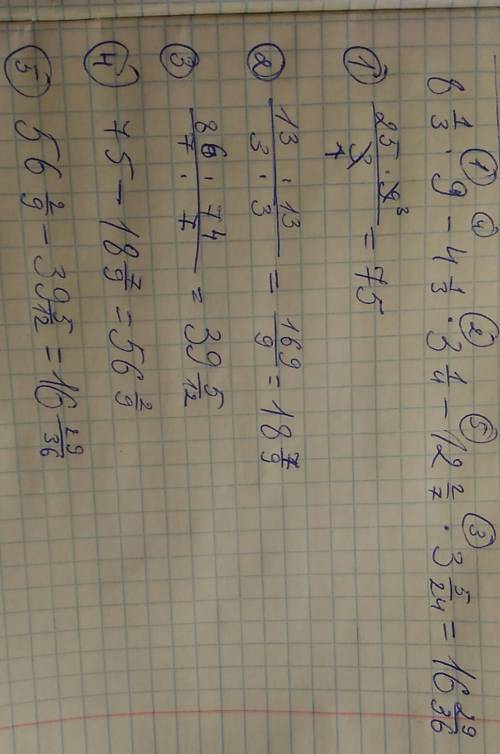 ① ④ ② ⑤ ③
8 1/3 · 9 − 4 1/3 · 3 1/4 − 12 2/7 · 3 5/24 = 16 29/36
① 25 · 9 3 / 3 1 = 75
② 13 · 13 / 3 · 3 = 169/9 = 18 7/9
③ 86 · 74 / 7 · 7 = 39 5/12
④ 75 − 18 7/9 = 56 2/9
⑤ 56 2/9 − 39 5/12 = 16 29/36